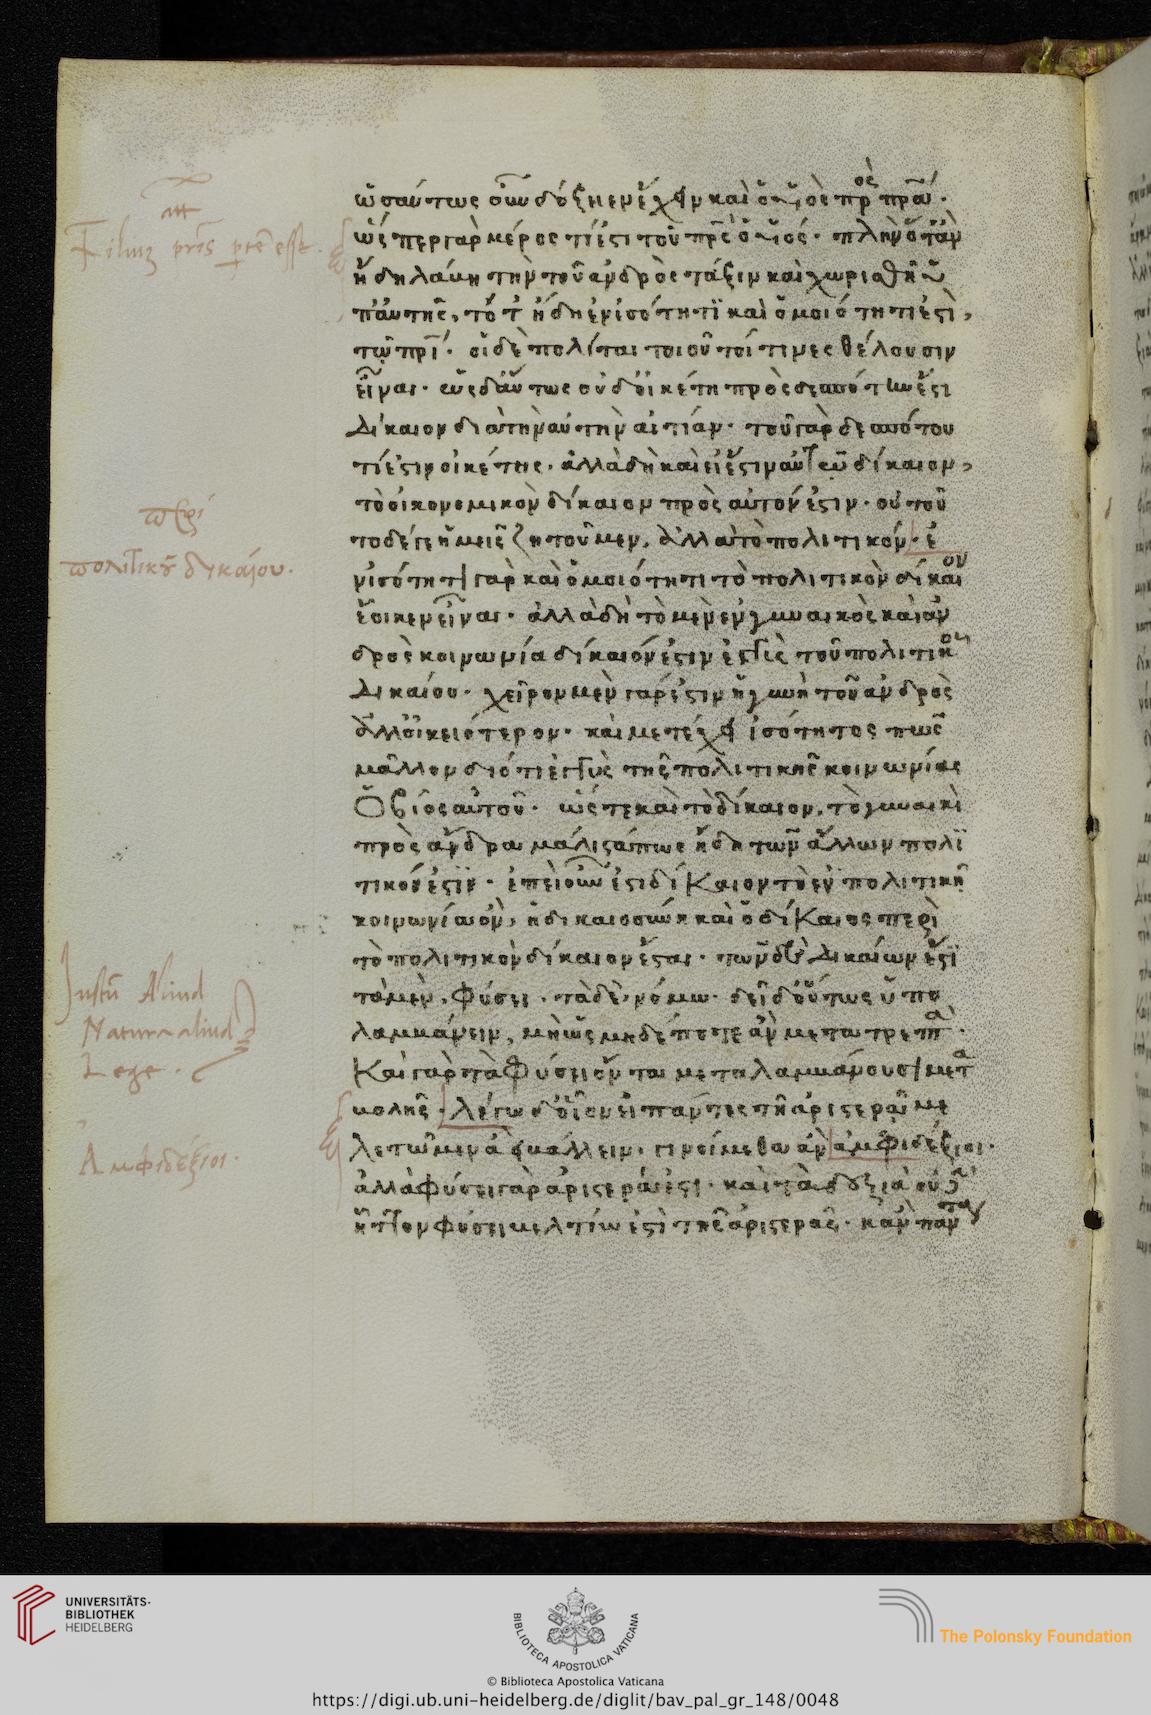 ὡσαύτως οὖν δόξειεν ἔχειν καὶ ὁ υἱὸς πρὸς πρα·
ὥσπερ γὰρ μέρος τί ἐστι τοῦ πρς ὁ υἱός· πλὴν ὅταν
ἤδη λάβη τὴν τοῦ ἀνδρὸς τάξιν καὶ χωρισθῆ
τότ ἤδη ἐν ἰσότητι καὶ ὁμοιότητι ἐστὶ,
τῶ πρι· οἱ δὲ πολῖται τοιοῦτοί τινες θέλουσιν
εἶναι· ὡσδαύτως οὐδ οἰκέτη πρὸς δεσπότην ἐστι
Δίκαιον διὰ τὴν αὐτὴν αἰτίαν· τοῦ γὰρ δεσπότου
τί ἐστιν οἰκέτης· ἀλλὰ δὴ καὶ εἰ ἔστιν αὐτῶ δίκαιον,
τὸ οἰκονομικὸν δίκαιον πρὸς αὐτόν ἐστιν· οὐ τοῦ
το δέ γε ἡμεῖς ζητοῦμεν, ἀλλὰ τὸ πολιτικόν· ἐ
ν ἰσότητι γὰρ καὶ ὁμοιότητι τὸ πολιτικὸν δίκαιον
ἔοικεν εἶναι· ἀλλὰ δὴ τὸ μὲν ἐν γυναικὸς καὶ ἀν
δρὸς κοινωνία δίκαιόν ἐστιν ἐγγὺς τοῦ πολιτικοῦ
Δικαίου· χεῖρον μὲν γάρ ἐστιν ἡ γυνὴ τοῦ ἀνδρὸς
ἀλλ οἰκειότερον· καὶ μετέχει ἰσότητος πως
μᾶλλον διότι ἐγγὺς τῆς πολιτικῆς κοινωνίας
Ὁ βίος αὐτοῦ· ὥστε καὶ τὸ δίκαιον, τὸ γυναικὶ
πρὸς ἄνδρα μάλιστά πως ἤδη τῶν ἄλλων πολι
τικόν ἐστιν· ἐπεὶ οὖν ἐστι δίκαιον τὸ ἐν πολιτικῆ
κοινωνία ὂν, ἡ δικαιοσύνη καὶ ὁ δίκαιος περὶ
τὸ πολιτικὸν δίκαιον ἔσται· τῶν δὲ Δικαίων ἐστὶ
τὰ μὲν, φύσει· τὰ δὲ, νόμω· δεῖ δ οὕτως ὑπο
λαμβάνειν, μὴ ὡς μηδέποτε ἂν μετατραπῆ·
Καὶ γὰρ τὰ φύσει ὄντα μεταλαμβάνουσι μετα
βολῆς· λέγω δ οἷον εἰ πάντες τῆ ἀριστερᾶ με
λετῶμεν ἀεὶ βάλλειν, γινοίμεθα ἂν ἀμφιδέξιοι·
ἀλλὰ φύσει γὰρ ἀριστερά ἐστι· καὶ τὰ δεξιὰ οὐδὲν
ἧττον φύσει βελτίω ἐστὶ τῆς ἀριστερᾶς· κἂν πάντα
Filius pris pte esse.
περὶ
πολιτικοῦ δικαίου.
Justū Aliud
Natura aliud
Lege.
Ἀμφιδέξιοι·
UNIVERSITÄTS-
BIBLIOTHEK
HEIDELBERG
BIBLIOTECA APOSTOLICA VATICANA
The Polonsky Foundation
© Biblioteca Apostolica Vaticana
https://digi.ub.uni-heidelberg.de/diglit/bav_pal_gr_148/0048